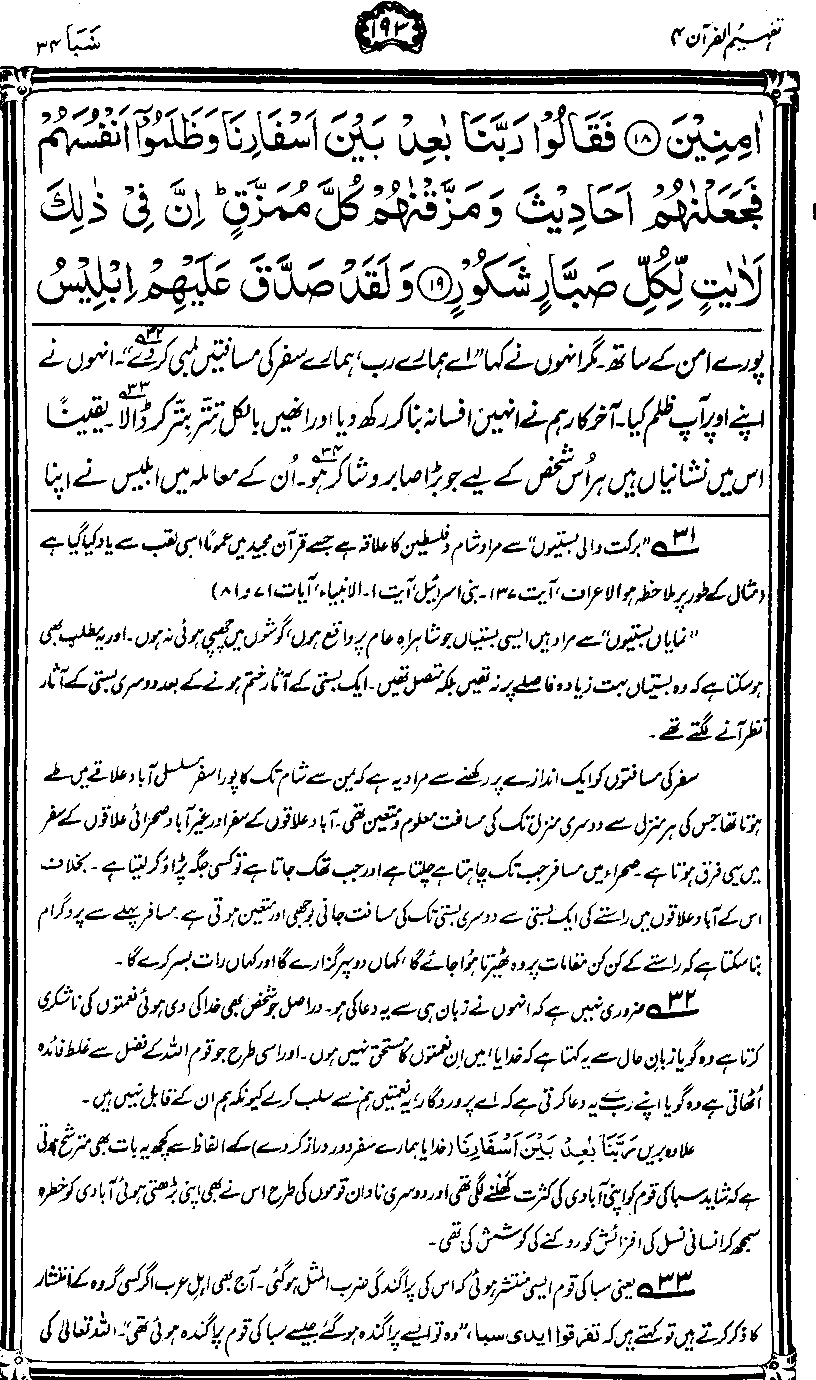 تفہیم القرآن ۴
۱۹۳
سَبَا ۳۴
اٰمِنِیْنَ ⑱ فَقَالُوْا رَبَّنَا بٰعِدْ بَیْنَ اَسْفَارِنَا وَظَلَمُوْۤا اَنْفُسَهُمْ
فَجَعَلْنٰهُمْ اَحَادِیْثَ وَمَزَّقْنٰهُمْ كُلَّ مُمَزَّقٍ ؕ اِنَّ فِیْ ذٰلِكَ
لَاٰیٰتٍ لِّكُلِّ صَبَّارٍ شَكُوْرٍ ⑲ وَلَقَدْ صَدَّقَ عَلَیْهِمْ اِبْلِیْسُ
پورے امن کے ساتھ۔ مگر انہوں نے کہا "اے ہمارے رب، ہمارے سفر کی مسافتیں لمبی کر دے"۳۲۔ انہوں نے
اپنے اوپر آپ ظلم کیا۔ آخرکار ہم نے انہیں افسانہ بنا کر رکھ دیا اور انہیں بالکل تتّر بتّر کر ڈالا۳۳۔ یقیناً
اس میں نشانیاں ہیں ہر اُس شخص کے لیے جو بڑا صابر و شاکر ہو۳۴۔ اُن کے معاملہ میں ابلیس نے اپنا
۳۱ "برکت والی بستیوں" سے مراد شام و فلسطین کا علاقہ ہے جسے قرآن مجید میں عموماً اسی لقب سے یاد کیا گیا ہے
(مثال کے طور پر ملاحظہ ہو الاعراف، آیت ۱۳۷۔ بنی اسرائیل، آیت ۱۔ الانبیاء، آیات ۷۱ و ۸۱)
"نمایاں بستیوں" سے مراد ہیں ایسی بستیاں جو شاہراہِ عام پر واقع ہوں، گوشوں میں چھپی ہوئی نہ ہوں۔ اور یہ مطلب بھی
ہو سکتا ہے کہ وہ بستیاں بہت زیادہ فاصلے پر نہ تھیں بلکہ متصل تھیں۔ ایک بستی کے آثار ختم ہونے کے بعد دوسری بستی کے آثار
نظر آنے لگتے تھے۔
سفر کی مسافتوں کو ایک اندازے پر رکھنے سے مراد یہ ہے کہ یمن سے شام تک کا پورا سفر مسلسل آباد علاقے میں طے
ہوتا تھا جس کی ہر منزل سے دوسری منزل تک کی مسافت معلوم و متعین تھی۔ آباد علاقوں کے سفر اور غیر آباد صحرائی علاقوں کے سفر
میں یہی فرق ہوتا ہے۔ صحراء میں مسافر جب تک چاہتا ہے چلتا ہے اور جب تھک جاتا ہے تو کسی جگہ پڑاؤ کر لیتا ہے۔ بخلاف
اس کے آباد علاقوں میں راستے کی ایک بستی سے دوسری بستی تک کی مسافت جانی بوجھی اور متعین ہوتی ہے۔ مسافر پہلے سے پروگرام
بنا سکتا ہے کہ راستے کے کن کن مقامات پر وہ ٹھیرتا ہوا جائے گا، کہاں دوپہر گزارے گا اور کہاں رات بسر کرے گا۔
۳۲ ضروری نہیں ہے کہ انہوں نے زبان ہی سے یہ دعا کی ہو۔ دراصل جو شخص بھی خدا کی دی ہوئی نعمتوں کی ناشکری
کرتا ہے وہ گویا زبانِ حال سے یہ کہتا ہے کہ خدایا، میں ان نعمتوں کا مستحق نہیں ہوں۔ اور اسی طرح جو قوم اللہ کے فضل سے غلط فائدہ
اُٹھاتی ہے وہ گویا اپنے رب سے یہ دعا کرتی ہے کہ اے پروردگار، یہ نعمتیں ہم سے سلب کر لے کیونکہ ہم ان کے قابل نہیں ہیں۔
علاوہ بریں رَبَّنَا بٰعِدْ بَیْنَ اَسْفَارِنَا (خدایا ہمارے سفر دور دراز کر دے) کے الفاظ سے کچھ یہ بات بھی مترشح ہوتی
ہے کہ شاید سبا کی قوم کو اپنی آبادی کی کثرت کھلنے لگی تھی اور دوسری نادان قوموں کی طرح اس نے بھی اپنی بڑھتی ہوئی آبادی کو خطرہ
سمجھ کر انسانی نسل کی افزائش کو روکنے کی کوشش کی تھی۔
۳۳ یعنی سبا کی قوم ایسی منتشر ہوئی کہ اس کی پراگندگی ضرب المثل ہو گئی۔ آج بھی اہل عرب اگر کسی گروہ کے انتشار
کا ذکر کرتے ہیں تو کہتے ہیں کہ تفرقوا ایدی سبا، "وہ تو ایسے پراگندہ ہو گئے جیسے سبا کی قوم پراگندہ ہوئی تھی"۔ اللہ تعالیٰ کی